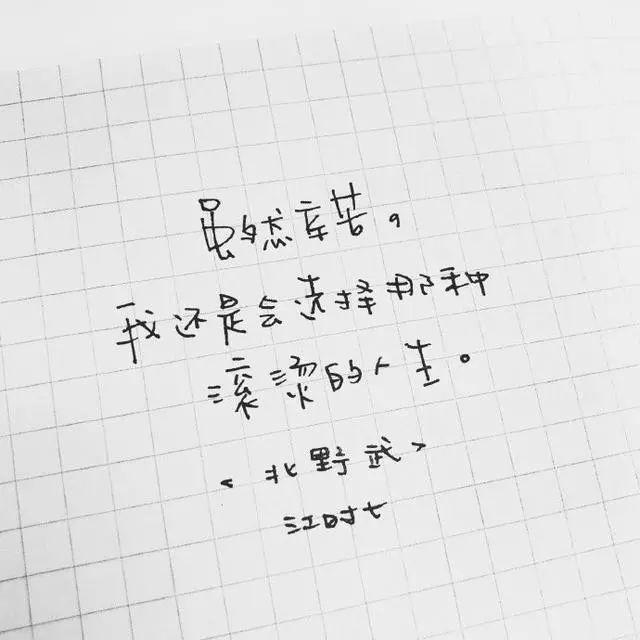 虽然辛苦。
我还是会选择那种
滚烫的人生。
<北野武>
江时七